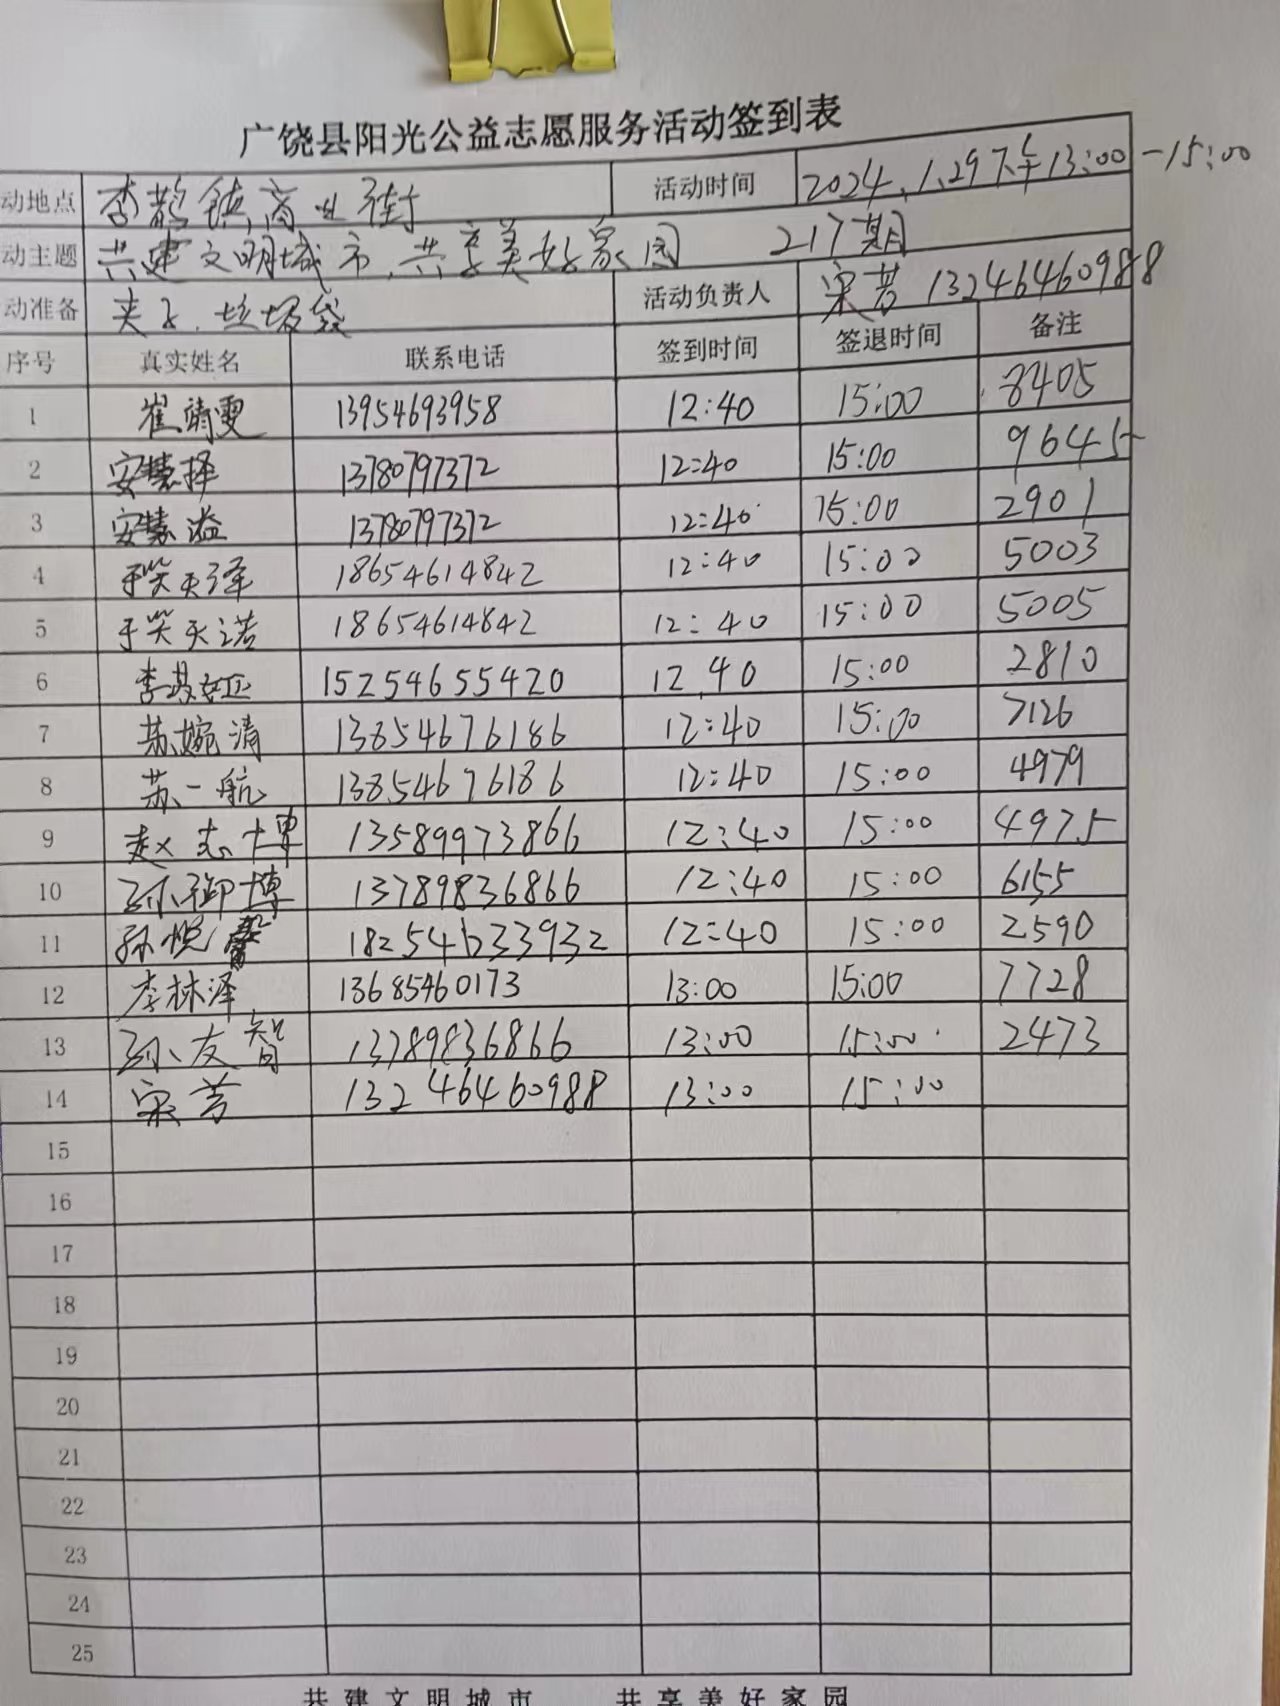 广饶县阳光公益志愿服务活动签到表
动地点 李鹊镇商业街 活动时间 2024.1.29下午13:00-15:00
动主题 共建文明城市,共享美好家园 217期
动准备 夹子.垃圾袋 活动负责人 宋芳 13246460988
序号 真实姓名 联系电话 签到时间 签退时间 备注
1 崔靖雯 13954693958 12:40 15:00 8405
2 安慧择 13780797372 12:40 15:00 9645
3 安慧溢 13780797372 12:40 15:00 2901
4 于笑天泽 18654614842 12:40 15:00 5003
5 于笑天诺 18654614842 12:40 15:00 5005
6 李 15254655420 12.40 15:00 2810
7 苏婉清 13854676186 12:40 15:00 7126
8 苏一航 13854676186 12:40 15:00 4979
9 赵志博 13589973866 12:40 15:00 4975
10 孙御博 13789836866 12:40 15:00 6155
11 孙悦馨 18254633932 12:40 15:00 2590
12 李林泽 13685460173 13:00 15:00 7728
13 孙友智 13789836866 13:00 15:00 2473
14 宋芳 13246460988 13:00 15:00
15
16
17
18
19
20
21
22
23
24
25
共建文明城市 共享美好家园